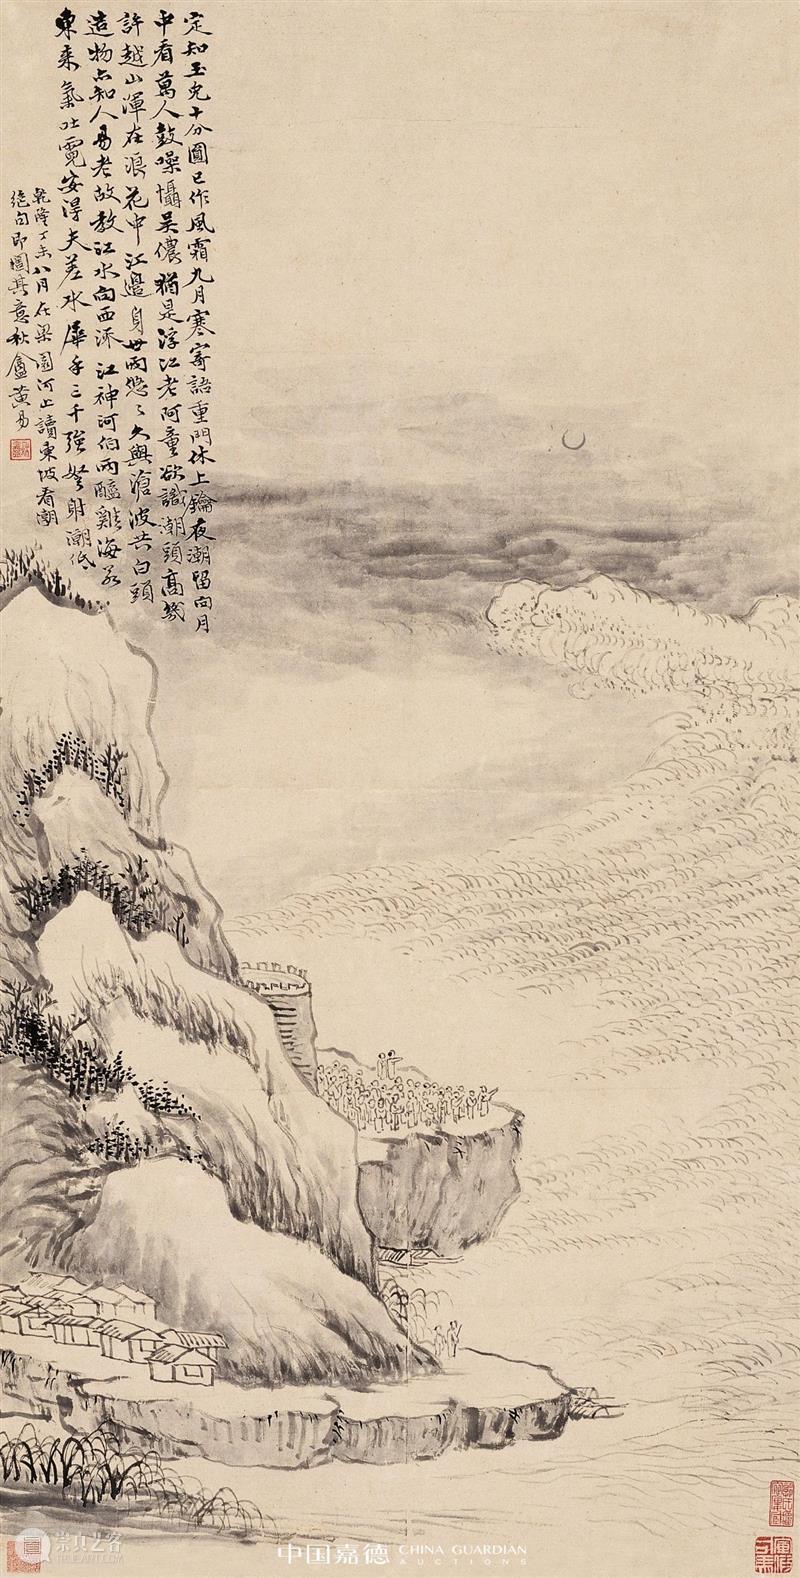 定知玉兔十分圓已作風霜九月寒寄語重門休上鑰夜潮留向月
中看萬人鼓噪懾吳儂猶是浮江老阿童欲識潮頭高幾
許越山渾在浪花中江邊身世兩悠〻久與滄波共白頭
造物亦知人易老故教江水向西流江神河伯兩醯雞海若
東來氣吐霓安得夫差水犀手三千強弩射潮低
乾隆丁未八月在梁園河上讀東坡看潮
絕句即圖其意秋盦黃易
崇真艺客
中国嘉德 CHINA GUARDIAN
AUCTIONS